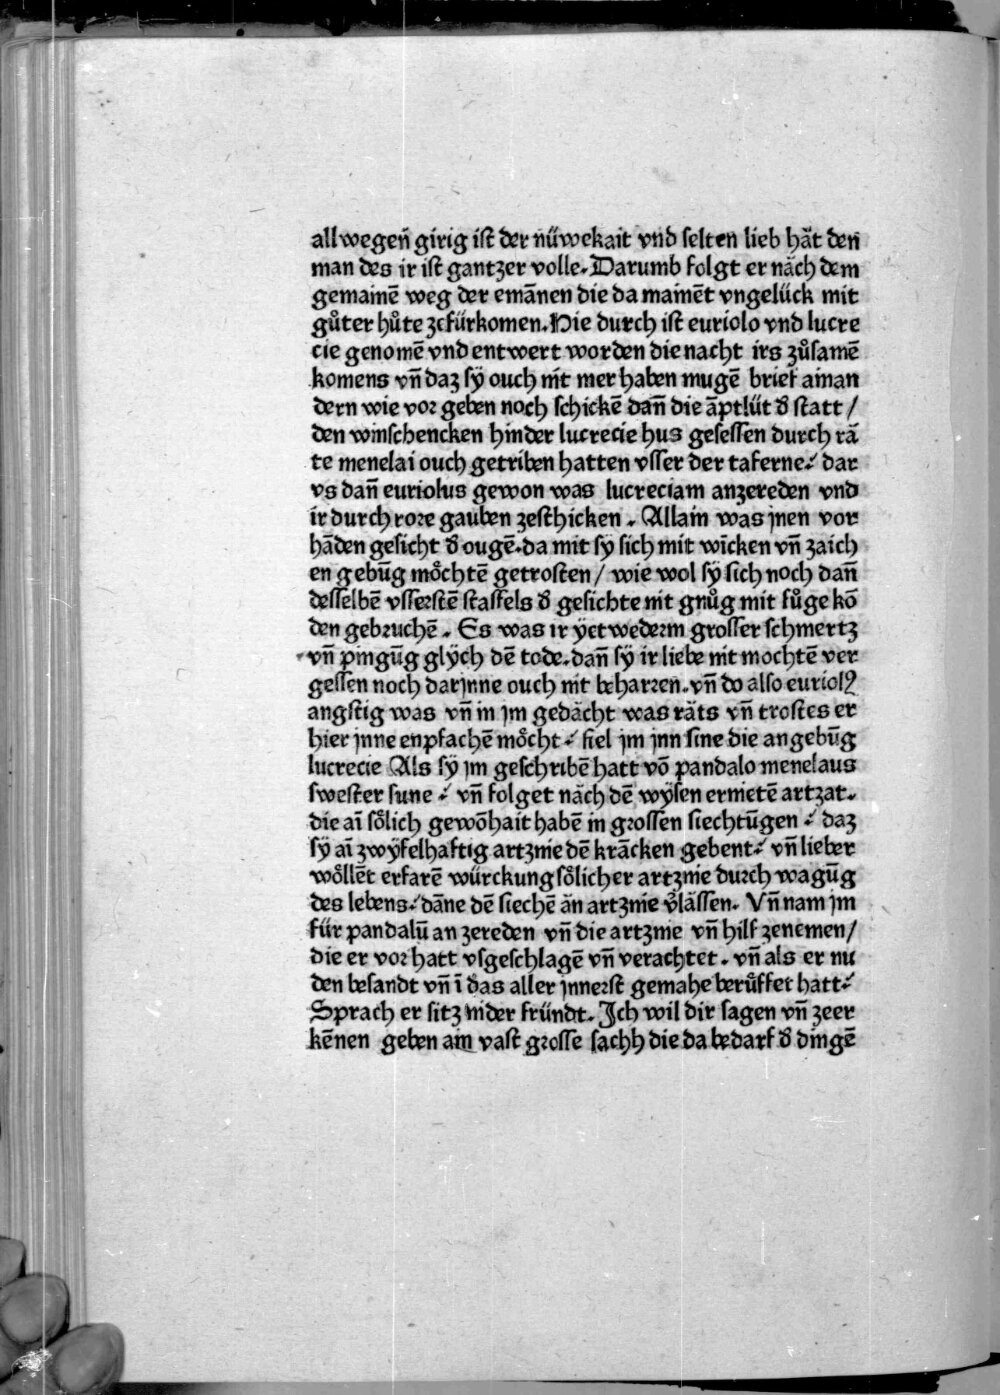 allwegen̄ girig ist der nüwekait vnd selten lieb hät den
man des ir ist gantzer volle. Darumb folgt er näch dem
gemainē weg der emānen die da mainēt vngelück mit
gůter hůte zefürkomen. Hie durch ist euriolo vnd lucre
cie genomē vnd entwert worden die nacht irs zůsamē
komens vn̄ daz sÿ ouch nit mer haben mugē brief ainan
dern wie vor geben noch schickē dan̄ die āptlüt d̕ statt /
den winschencken hinder lucrecie hus gesessen durch rā
te menelai ouch getriben hatten vsser der taferne: dar
vs dan̄ euriolus gewon was lucreciam anzereden vnd
ir durch rore gauben zeschicken. Allain was jnen vor
hāden gesicht d̕ ougē. da mit sÿ sich mit wīcken vn̄ zaich
en gebūg möchtē getrosten / wie wol sÿ sich noch dan̄
desselbē vsserstē staffels d̕ gesichte nit gnůg mit fůge kō
den gebruchē. Es was ir ÿetwederm grosser schmertz
vn̄ pingūg glÿch dē tode. dan̄ sÿ ir liebe nit mochtē ver
gessen noch darjnne ouch nit beharren. vn̄ do also euriolꝰ
angstig was vn̄ in jm gedächt was räts vn̄ trostes er
hier jnne enpfachē möcht: fiel jm jnn sine die angebūg
lucrecie Als sÿ jm geschribē hatt vō pandalo menelaus
swester sune: vn̄ folget näch dē wÿsen ernietē artzat.
die aī sölich gewōhait habē in grossen siechtūgen: daz
sÿ aī zwÿfelhaftig artznie dē krācken gebent: vn̄ lieber
wöllēt erfarē würckung sölicher artznie durch wagūg
des lebens: dāne dē siechē än artznie v̕lässen. Vn̄ nam jm
für pandalū an zereden vn̄ die artznie vn̄ hilf zenemen /
die er vor hatt vsgeschlagē vn̄ verachtet. vn̄ als er nu
den besandt vn̄ ī d̕as aller jnnerst gemahe berůffet hatt:
Sprach er sitz nider fründt. Ich wil dir sagen vn̄ zeer
kēnen geben ain vast grosse sachh die da bedarf d̕ dingē